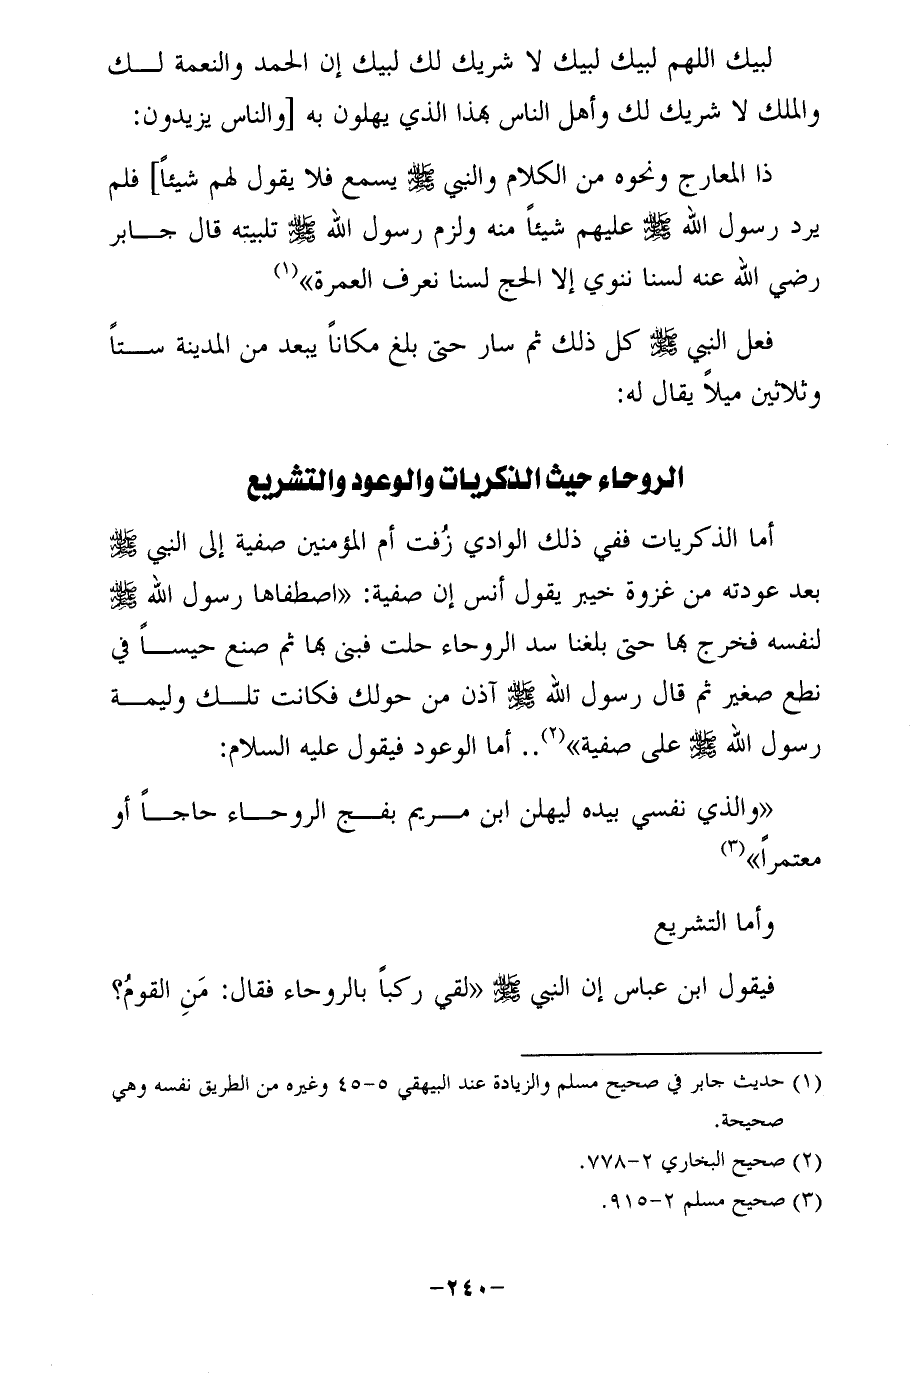 لبيك اللهم لبيك لبيك لا شريك لك لبيك إن الحمد والنعمة لـــك
والملك لا شريك لك وأهل الناس بهذا الذي يهلون به [والناس يزيدون:
ذا المعارج ونحوه من الكلام والنبي ﷺ يسمع فلا يقول لهم شيئاً] فلم
يرد رسول الله ﷺ عليهم شيئاً منه ولزم رسول الله ﷺ تلبيته قال جـــابر
رضي الله عنه لسنا ننوي إلا الحج لسنا نعرف العمرة»(١)
فعل النبي ﷺ كل ذلك ثم سار حتى بلغ مكاناً يبعد من المدينة ستـــاً
وثلاثين ميلاً يقال له:
الروحاء حيث الذكريات والوعود والتشريع
أما الذكريات ففي ذلك الوادي زُفت أم المؤمنين صفية إلى النبي ﷺ
بعد عودته من غزوة خيبر يقول أنس إن صفية: «اصطفاها رسول الله ﷺ
لنفسه فخرج بها حتى بلغنا سد الروحاء حلت فبنى بها ثم صنع حيســـاً في
نطع صغير ثم قال رسول الله ﷺ آذن من حولك فكانت تلـــك وليمـــة
رسول الله ﷺ على صفية»(٢).. أما الوعود فيقول عليه السلام:
«والذي نفسي بيده ليهلن ابن مـــريم بفـــج الروحـــاء حاجـــاً أو
معتمراً»(٣)
وأما التشريع
فيقول ابن عباس إن النبي ﷺ «لقي ركباً بالروحاء فقال: مَنِ القومُ؟
(١) حديث جابر في صحيح مسلم والزيادة عند البيهقي ٥-٤٥ وغيره من الطريق نفسه وهي
صحيحة.
(٢) صحيح البخاري ٢-٧٧٨.
(٣) صحيح مسلم ٢-٩١٥.
-٢٤٠-